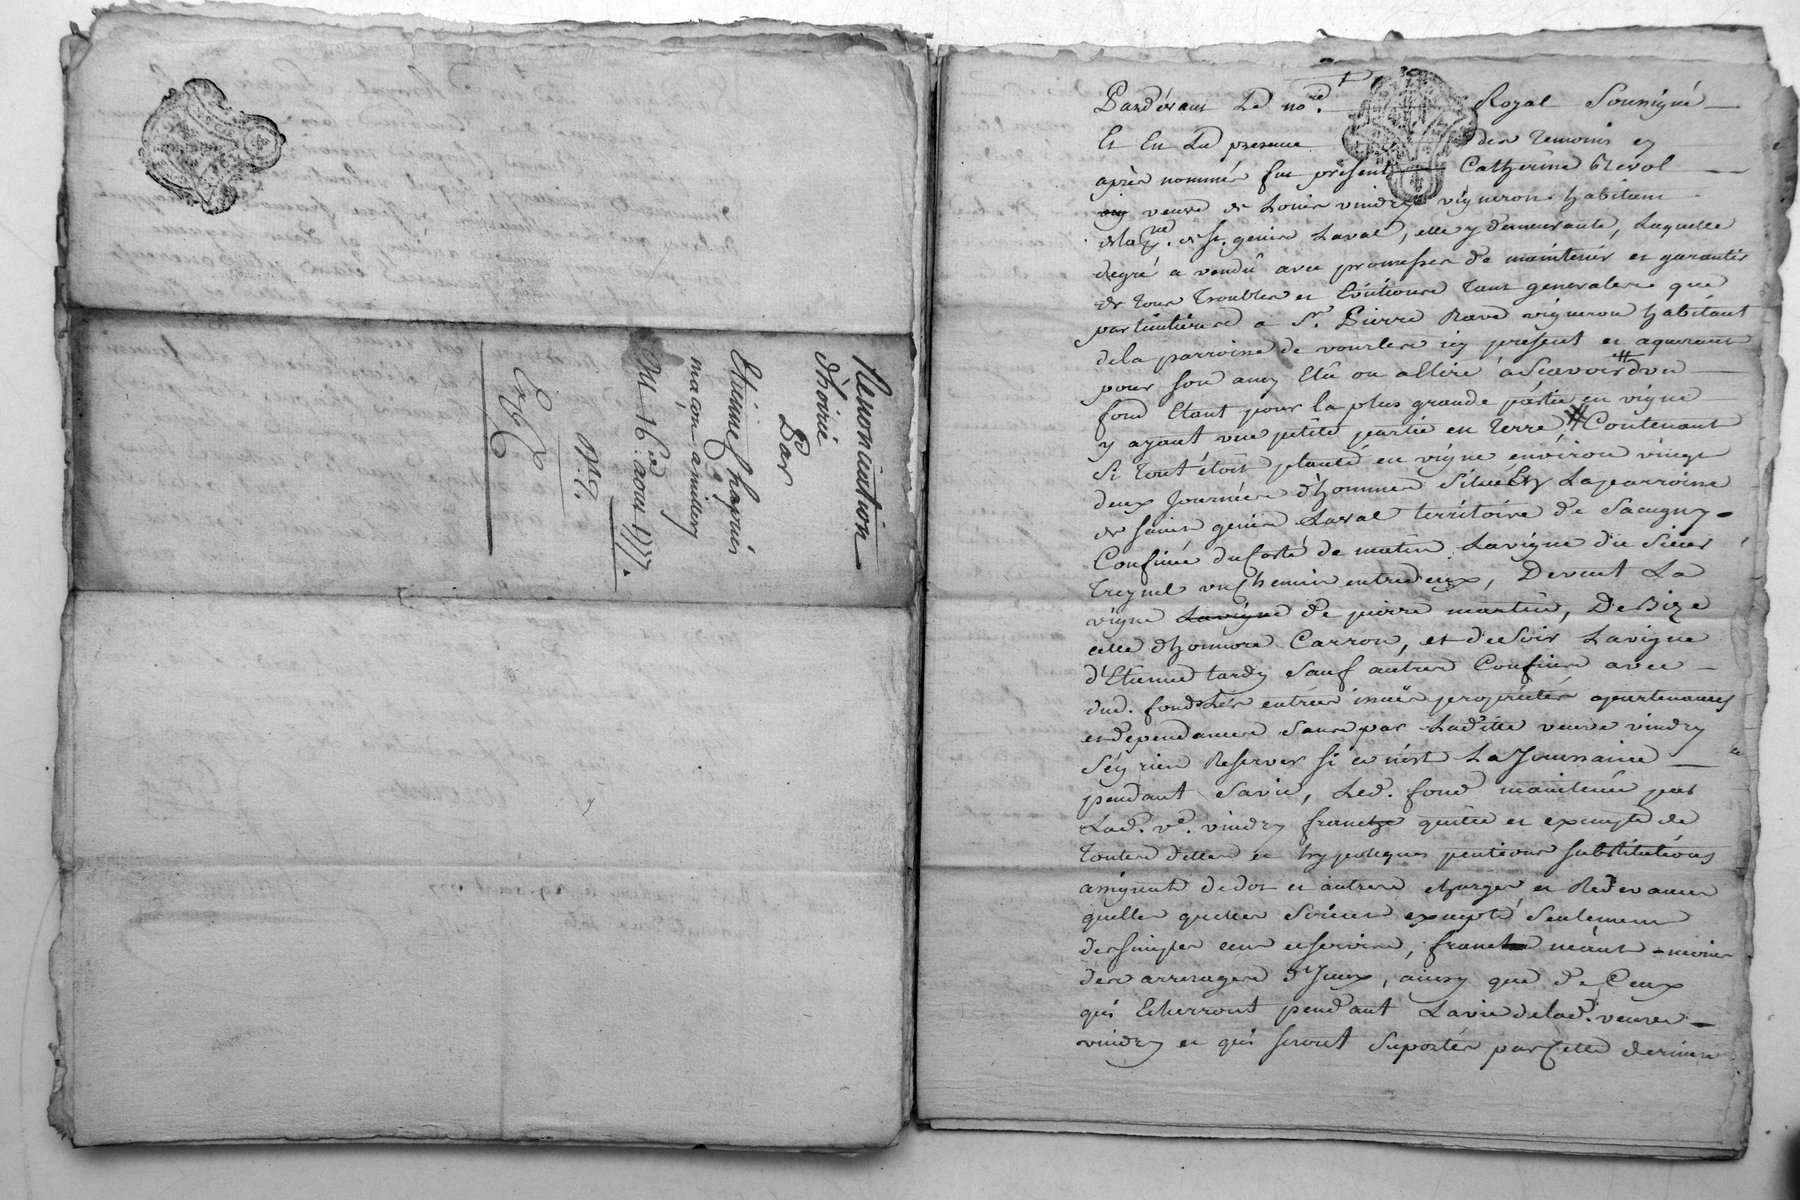 Renonciation
d'hoirie
Par
Etienne Chaprier
macon a millery
Du 16e. aoust 1777.
N°. 7.
Exp
Pardevant Le nore. Royal Soussigné
Et En La presence des temoins cy
après nommés fut présente Catherine Révol
veuve de Louis vindry vigneron habitant
de la psse. de st. genis Laval, elle y demeurante, Laquelle
degré a vendû avec promesses de maintenir et garantir
de tous troubles et Evictions tant generales que
particulieres a Sr. Pierre Ravé vigneron habitant
de la parroisse de vourles icy present et aquereur
pour son amy Elû ou a Elire à Scavoir d'un
fond Etant pour la plus grande partie en vigne
y ayant une petite partie en terre # Contenant
Si tout étoit planté en vigne environ vingt
deux Journées d'hommes Situé En La parroisse
de saint genis Laval territoire de Sacugny
Confiné du Costé de matin La vigne du Sieur
un Chemin entredeux, De vent La
vigne La vigne de pierre martin, De Bize
celle d'honnoré Carron, et de Soir La vigne
d'Etienne tardy Sauf autres Confins avec
dud. fond Les entrées issuës proprietés apartenances
et dependances Sans par Laditte veuve vindry
S'en rien Reserver Si ce n'est La Jouissance
pendant Sa vie, Led. fond maintenu par
Lad. ve. vindry franc quitte et exempt de
toutes dettes et hypotheques pentions Substitutions
assignat de dot et autres charges et Redevances
quelles quelles Soient excepté Seulement
des simples cens et servis, franc néant-moins
des arrerages d'Iceux, ainsy que de Ceux
qui Echerront pendant La vie de lad. veuve
vindry et qui seront Suportés par Cette derniere